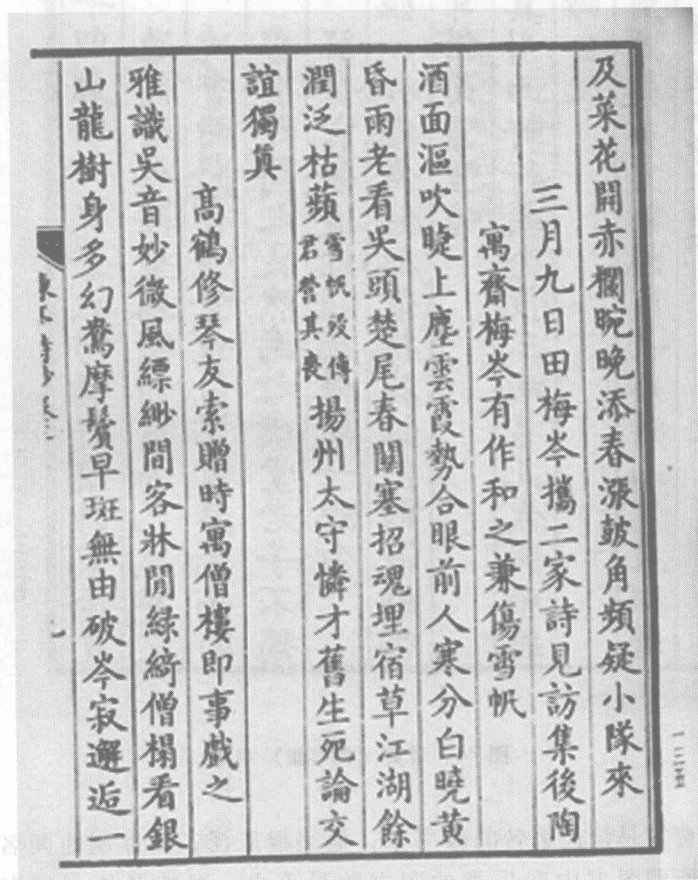 及菜花開赤欄晼晚添春漲鼓角頻疑小隊來
三月九日田梅岑攜二家詩見訪集後陶
寓齋梅岑有作和之兼傷雪帆
酒面漚吹睫上塵雲霞勢合眼前人寒分白曉黃
昏雨老看吳頭楚尾春關塞招魂埋宿草江湖餘
潤泛枯蘋雪帆歿傳君營其喪揚州太守憐才舊生死論交
誼獨眞
高鶴修琴友索贈時寓僧樓即事戲之
雅識吳音妙微風縹緲間客牀閒綠綺僧榻看銀
山龍樹身多幻鶩摩鬢早斑無由破岑寂邂逅一